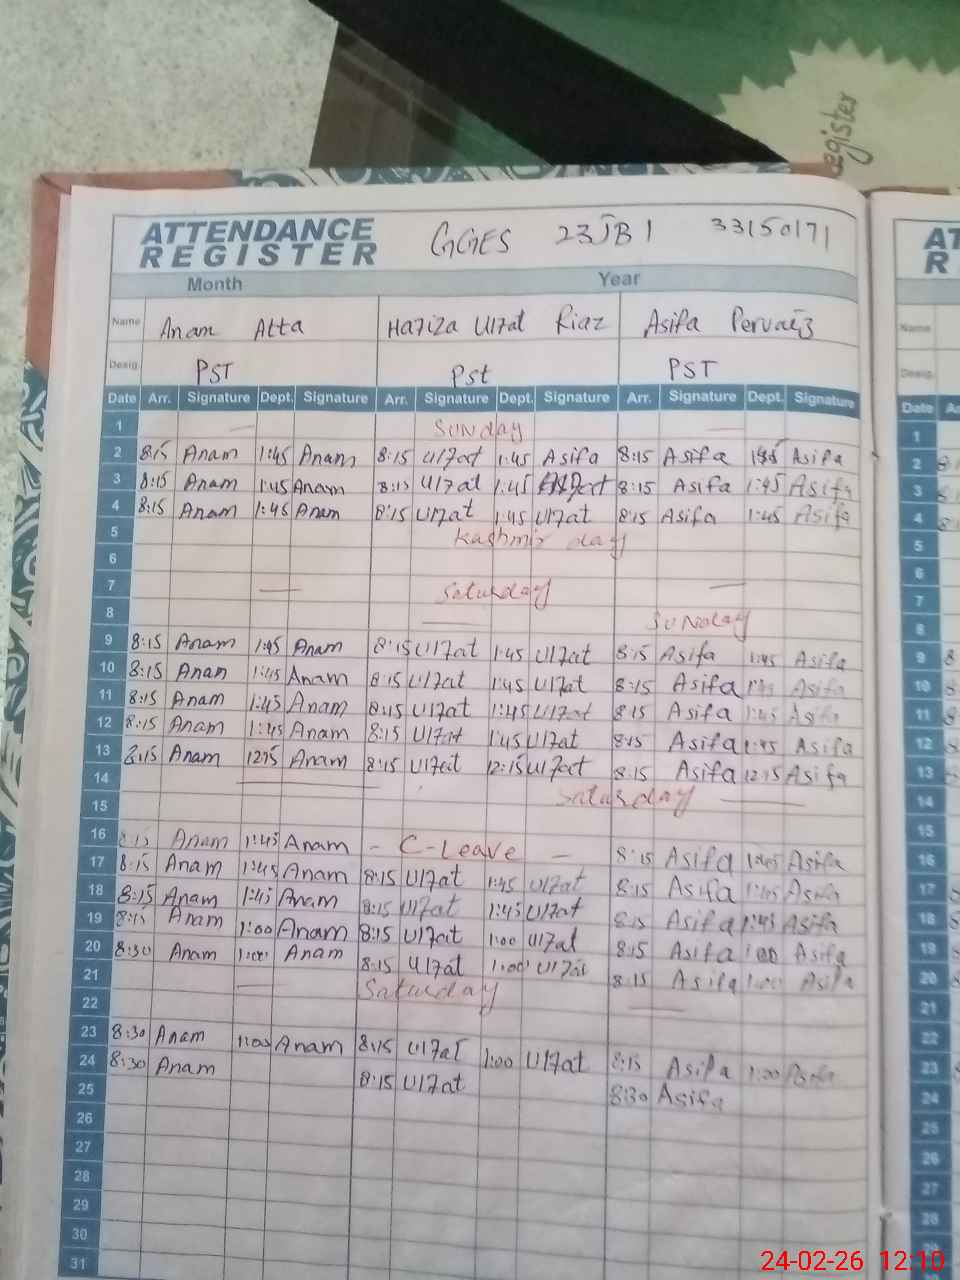 register
ATTENDANCE REGISTER GGES 23JB1 33150171
Month Year
Name Anam Atta Hafiza Ulfat Riaz Asifa Pervaiz
Desig. PST Pst PST
Date Arr. Signature Dept. Signature Arr. Signature Dept. Signature Arr. Signature Dept. Signature
1 — Sunday —
2 8:15 Anam 1:45 Anam 8:15 Ulfat 1:45 Asifa 8:15 Asifa Asifa
3 8:15 Anam 1:45 Anam 8:15 Ulfat 1:45 8:15 Asifa 1:45 Asifa
4 8:15 Anam 1:45 Anam 8:15 Ulfat 1:45 Ulfat 8:15 Asifa 1:45 Asifa
5 Kashmir day
6
7 — Saturday —
8 — Sunday
9 8:15 Anam 1:45 Anam 8:15 Ulfat 1:45 Ulfat 8:15 Asifa 1:45 Asifa
10 8:15 Anam 1:45 Anam 8:15 Ulfat 1:45 Ulfat 8:15 Asifa Asifa
11 8:15 Anam 1:45 Anam 8:15 Ulfat 1:45 Ulfat 8:15 Asifa 1:45 Asifa
12 8:15 Anam 1:45 Anam 8:15 Ulfat 1:45 Ulfat 8:15 Asifa 1:45 Asifa
13 8:15 Anam 12:15 Anam 8:15 Ulfat 12:15 Ulfat 8:15 Asifa 12:15 Asifa
14 — Saturday —
15
16 8:15 Anam 1:45 Anam - C-Leave - 8:15 Asifa 1:45 Asifa
17 8:15 Anam 1:45 Anam 8:15 Ulfat 1:45 Ulfat 8:15 Asifa 1:45 Asifa
18 8:15 Anam 1:45 Anam 8:15 Ulfat 1:45 Ulfat 8:15 Asifa 1:45 Asifa
19 8:15 Anam 1:00 Anam 8:15 Ulfat 1:00 Ulfat 8:15 Asifa 1:00 Asifa
20 8:30 Anam 1:00 Anam 8:15 Ulfat 1:00 Ulfat 8:15 Asifa 1:00 Asifa
21 — Saturday —
22
23 8:30 Anam 1:00 Anam 8:15 Ulfat 1:00 Ulfat 8:15 Asifa 1:00 Asifa
24 8:30 Anam 8:15 Ulfat 8:30 Asifa
25
26
27
28
29
30
31
Name
Desig.
Date
1
2
3
4
5
6
7
8
9
10
11
12
13
14
15
16
17
18
19
20
21
22
23
24
25
26
27
28
29
24-02-26 12:10